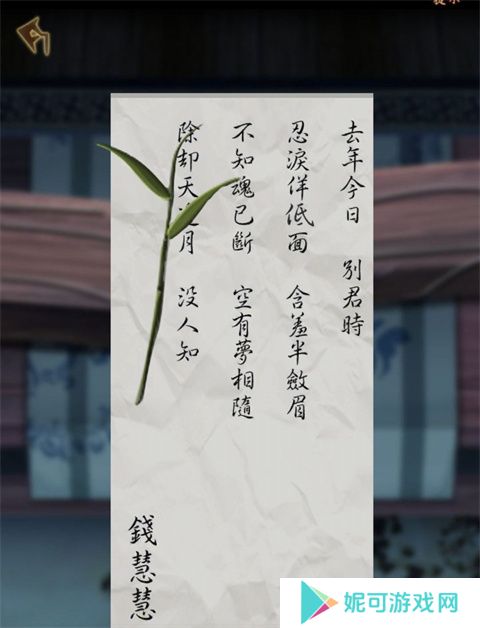 去年今日 別君時
忍淚佯低面 含羞半斂眉
不知魂已斷 空有夢相隨
除却天 月 没人知
錢慧慧
妮可游戏网